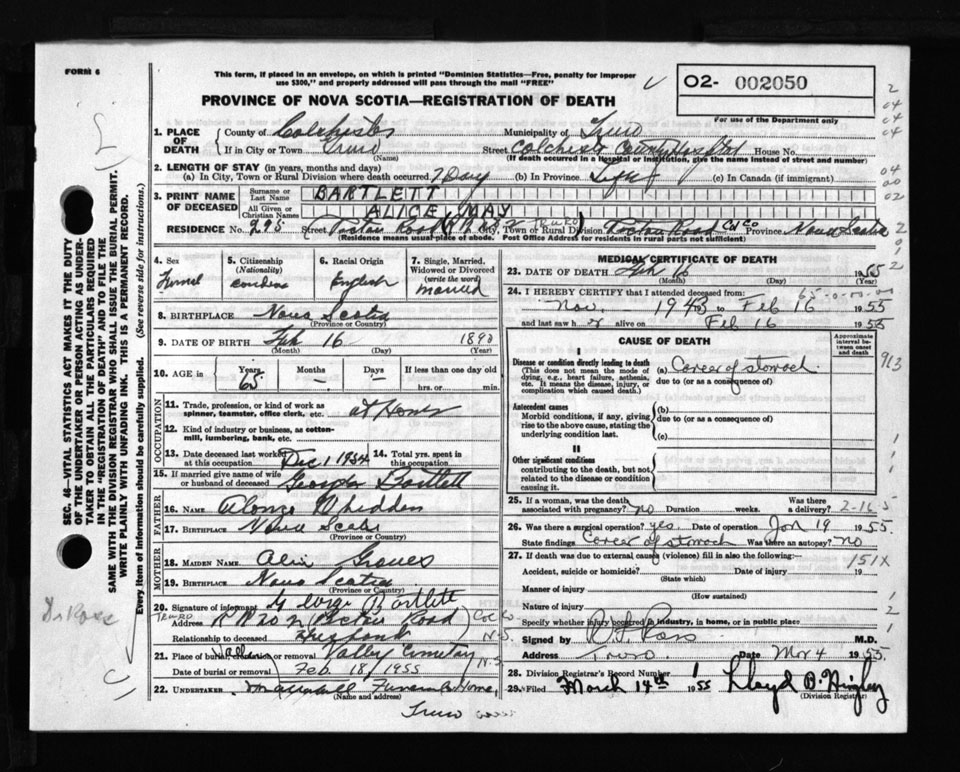 FORM 6
This form, if placed in an envelope, on which is printed "Dominion Statistics—Free, penalty for improper
use $300," and properly addressed will pass through the mail "FREE"
02- 002050
For use of the Department only
PROVINCE OF NOVA SCOTIA—REGISTRATION OF DEATH
SEC. 46—VITAL STATISTICS ACT MAKES IT THE DUTY
OF THE UNDERTAKER OR PERSON ACTING AS UNDER-
TAKER TO OBTAIN ALL THE PARTICULARS REQUIRED
IN THE "REGISTRATION OF DEATH" AND TO FILE THE
SAME WITH THE DIVISION REGISTRAR WHO SHALL ISSUE THE BURIAL PERMIT.
WRITE PLAINLY WITH UNFADING INK. THIS IS A PERMANENT RECORD.
Every item of information should be carefully supplied. (See reverse side for instructions.)
1. PLACE OF DEATH
County of Colchester Municipality of Truro
If in City or Town Truro Street Colchester County Hospital House No.
(Name) (If death occurred in a Hospital or Institution, give the name instead of street and number)
2. LENGTH OF STAY (in years, months and days)
(a) In City, Town or Rural Division where death occurred 7 Days (b) In Province Life (c) In Canada (if immigrant)
3. PRINT NAME OF DECEASED
Surname or Last Name BARTLETT
All Given or Christian Names ALICE MAY
RESIDENCE No. 295 Street Pictou Road City, Town or Rural Division TRURO Pictou Road Col Co Province Nova Scotia
(Residence means usual place of abode. Post Office Address for residents in rural parts not sufficient)
4. Sex
5. Citizenship (Nationality)
6. Racial Origin English
7. Single, Married, Widowed or Divorced (write the word) married
8. BIRTHPLACE Nova Scotia
(Province or Country)
9. DATE OF BIRTH Feb 16 1890
(Month) (Day) (Year)
10. AGE in Years 65 Months — Days — If less than one day old hrs. or min.
OCCUPATION
11. Trade, profession, or kind of work as spinner, teamster, office clerk, etc. at Home
12. Kind of industry or business, as cotton-mill, lumbering, bank, etc.
13. Date deceased last worked at this occupation Dec 1 1954 14. Total yrs. spent in this occupation
15. If married give name of wife or husband of deceased George Bartlett
FATHER
16. NAME Alonzo Whidden
17. BIRTHPLACE Nova Scotia
(Province or Country)
MOTHER
18. MAIDEN NAME Graves
19. BIRTHPLACE Nova Scotia
(Province or Country)
20. Signature of informant George Bartlett
Address TRURO R R no 2 (Pictou Road) Col Co
Relationship to deceased Husband N.S.
21. Place of burial, cremation or removal Valley Cemetery N.S.
Date of burial or removal Feb. 18/1955
22. UNDERTAKER Funeral Home,
(Name and address)
Truro
MEDICAL CERTIFICATE OF DEATH
23. DATE OF DEATH Feb 16 1955
(Month) (Day)
24. I HEREBY CERTIFY that I attended deceased from
Nov. 1943 to Feb 16 1955
and last saw h er alive on Feb 16 1955
CAUSE OF DEATH
Approximate interval between onset and death
I
Disease or condition directly leading to death
(This does not mean the mode of dying, e.g., heart failure, asthenia, etc. It means the disease, injury, or complication which caused death.)
(a) Cancer of stomach
due to (or as a consequence of)
Antecedent causes
Morbid conditions, if any, giving rise to the above cause, stating the underlying condition last.
(b)
due to (or as a consequence of)
(c)
II
Other significant conditions
contributing to the death, but not related to the disease or condition causing it.
25. If a woman, was the death associated with pregnancy? no Duration weeks. Was there a delivery?
2-16 5
26. Was there a surgical operation? yes. Date of operation Jan 19 1955
State findings Cancer of stomach Was there an autopsy? no
27. If death was due to external causes (violence) fill in also the following:—
151X
Accident, suicide or homicide? Date of injury 19
(State which)
Manner of injury
(How sustained)
Nature of injury
Specify whether injury occurred in industry, in home, or in public place
Signed by Ross M.D.
Address Truro Date Mar 4 1955
28. Division Registrar's Record Number
29. Filed March 14th 1955
(Division Registrar)
Dr Ross